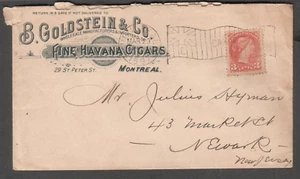 RETURN IN 5 DAYS IF NOT DELIVERED TO
B. GOLDSTEIN & CO.
WHOLESALE MANUFACTURERS & IMPORTERS
FINE HAVANA CIGARS.
29 ST PETER ST. MONTREAL.
Mr. Julius Hyman
43 Market St
Newark
New Jersey